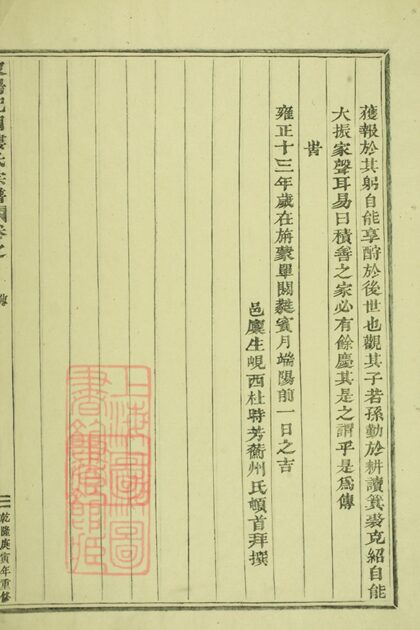 獲報於其躬自能享酧於後世也觀其子若孫勤於耕讀箕裘克紹自能
大振家聲耳易曰積善之家必有餘慶其是之謂乎是為傳
旹
雍正十三年歲在旃蒙單閼蕤賓月端陽前一日之吉
邑廩生峴西杜時芳蘅州氏頓首拜撰
上海圖書館藏
乾隆庚寅年重修